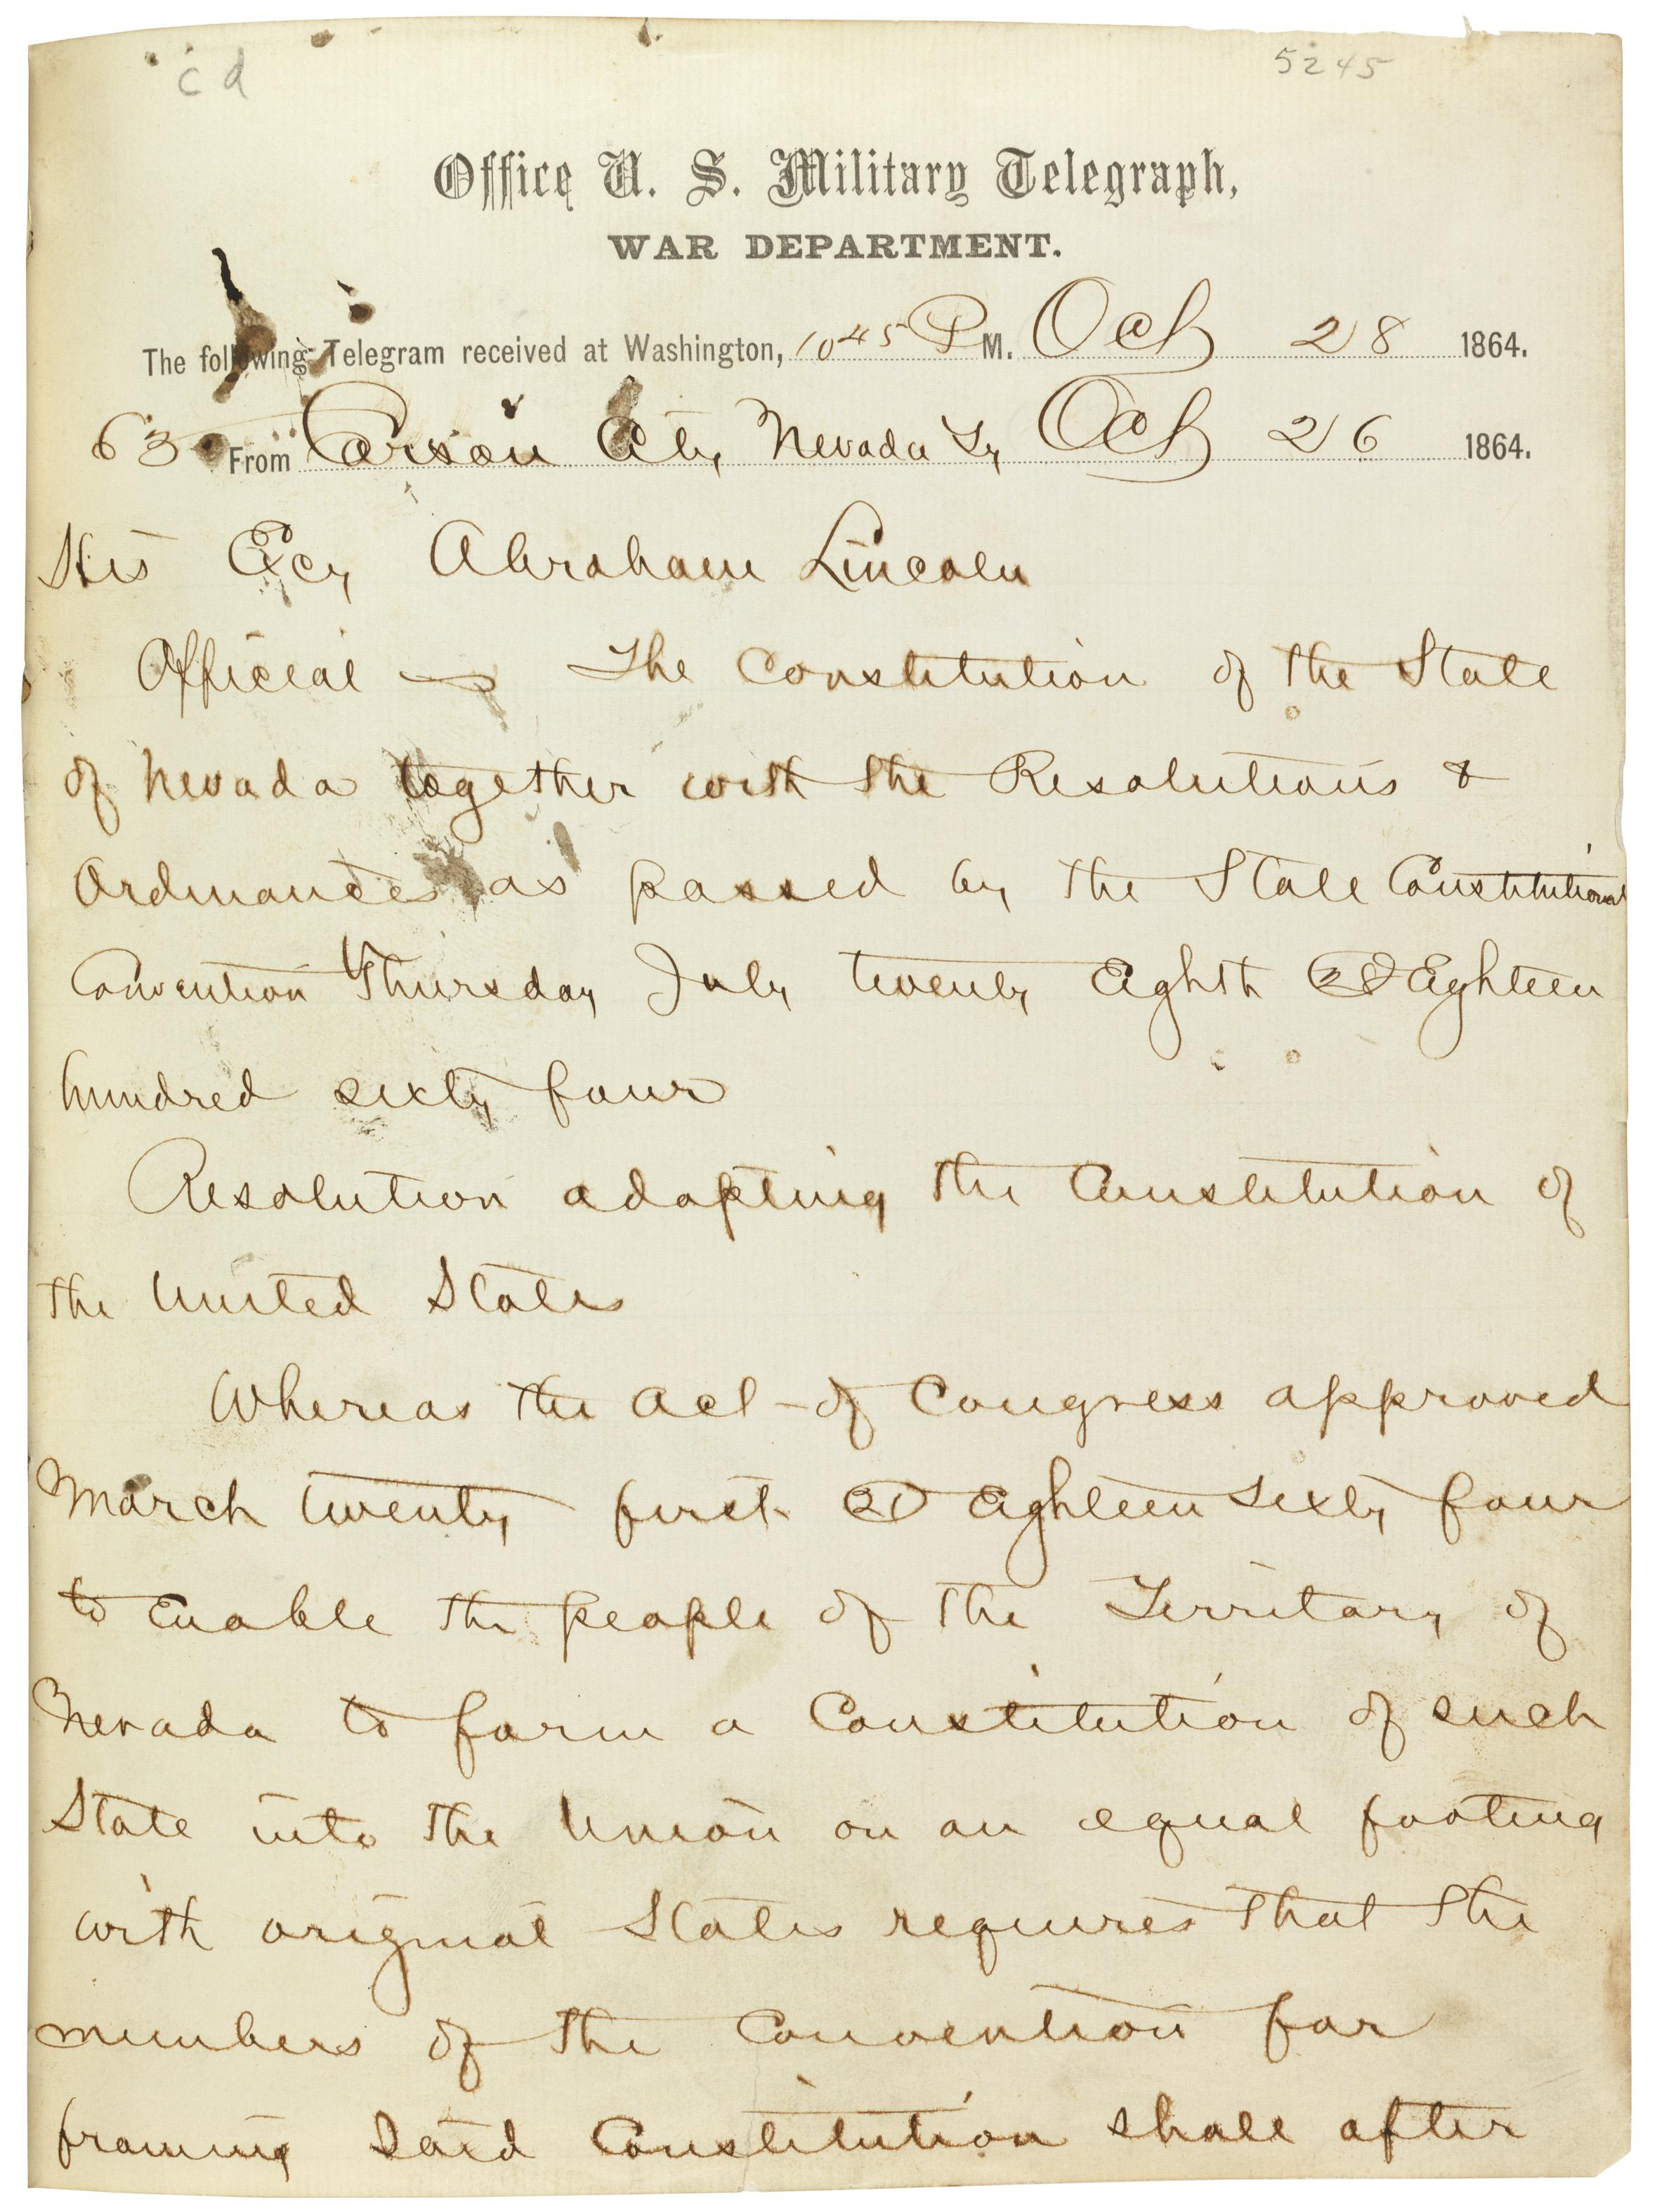 cd
5245
Office U. S. Military Telegraph,
WAR DEPARTMENT.
The following Telegram received at Washington, 10 45 P M. Oct 28 1864.
63 From Carson City Nevada Ty Oct 26 1864.
His Ecy Abraham Lincoln
Official The Constitution of the State
of Nevada together with the Resolutions &
Ordinances as passed by the State Constitutional
Convention Thursday July twenty Eighth 28 Eighteen
hundred sixty four
Resolution adopting the Constitution of
the United States
Whereas the Act of Congress approved
March twenty first 21 Eighteen Sixty four
to Enable the people of the Territory of
Nevada to form a Constitution of such
State into the Union on an equal footing
with original States requires that the
members of the Convention for
framing Said Constitution shall after